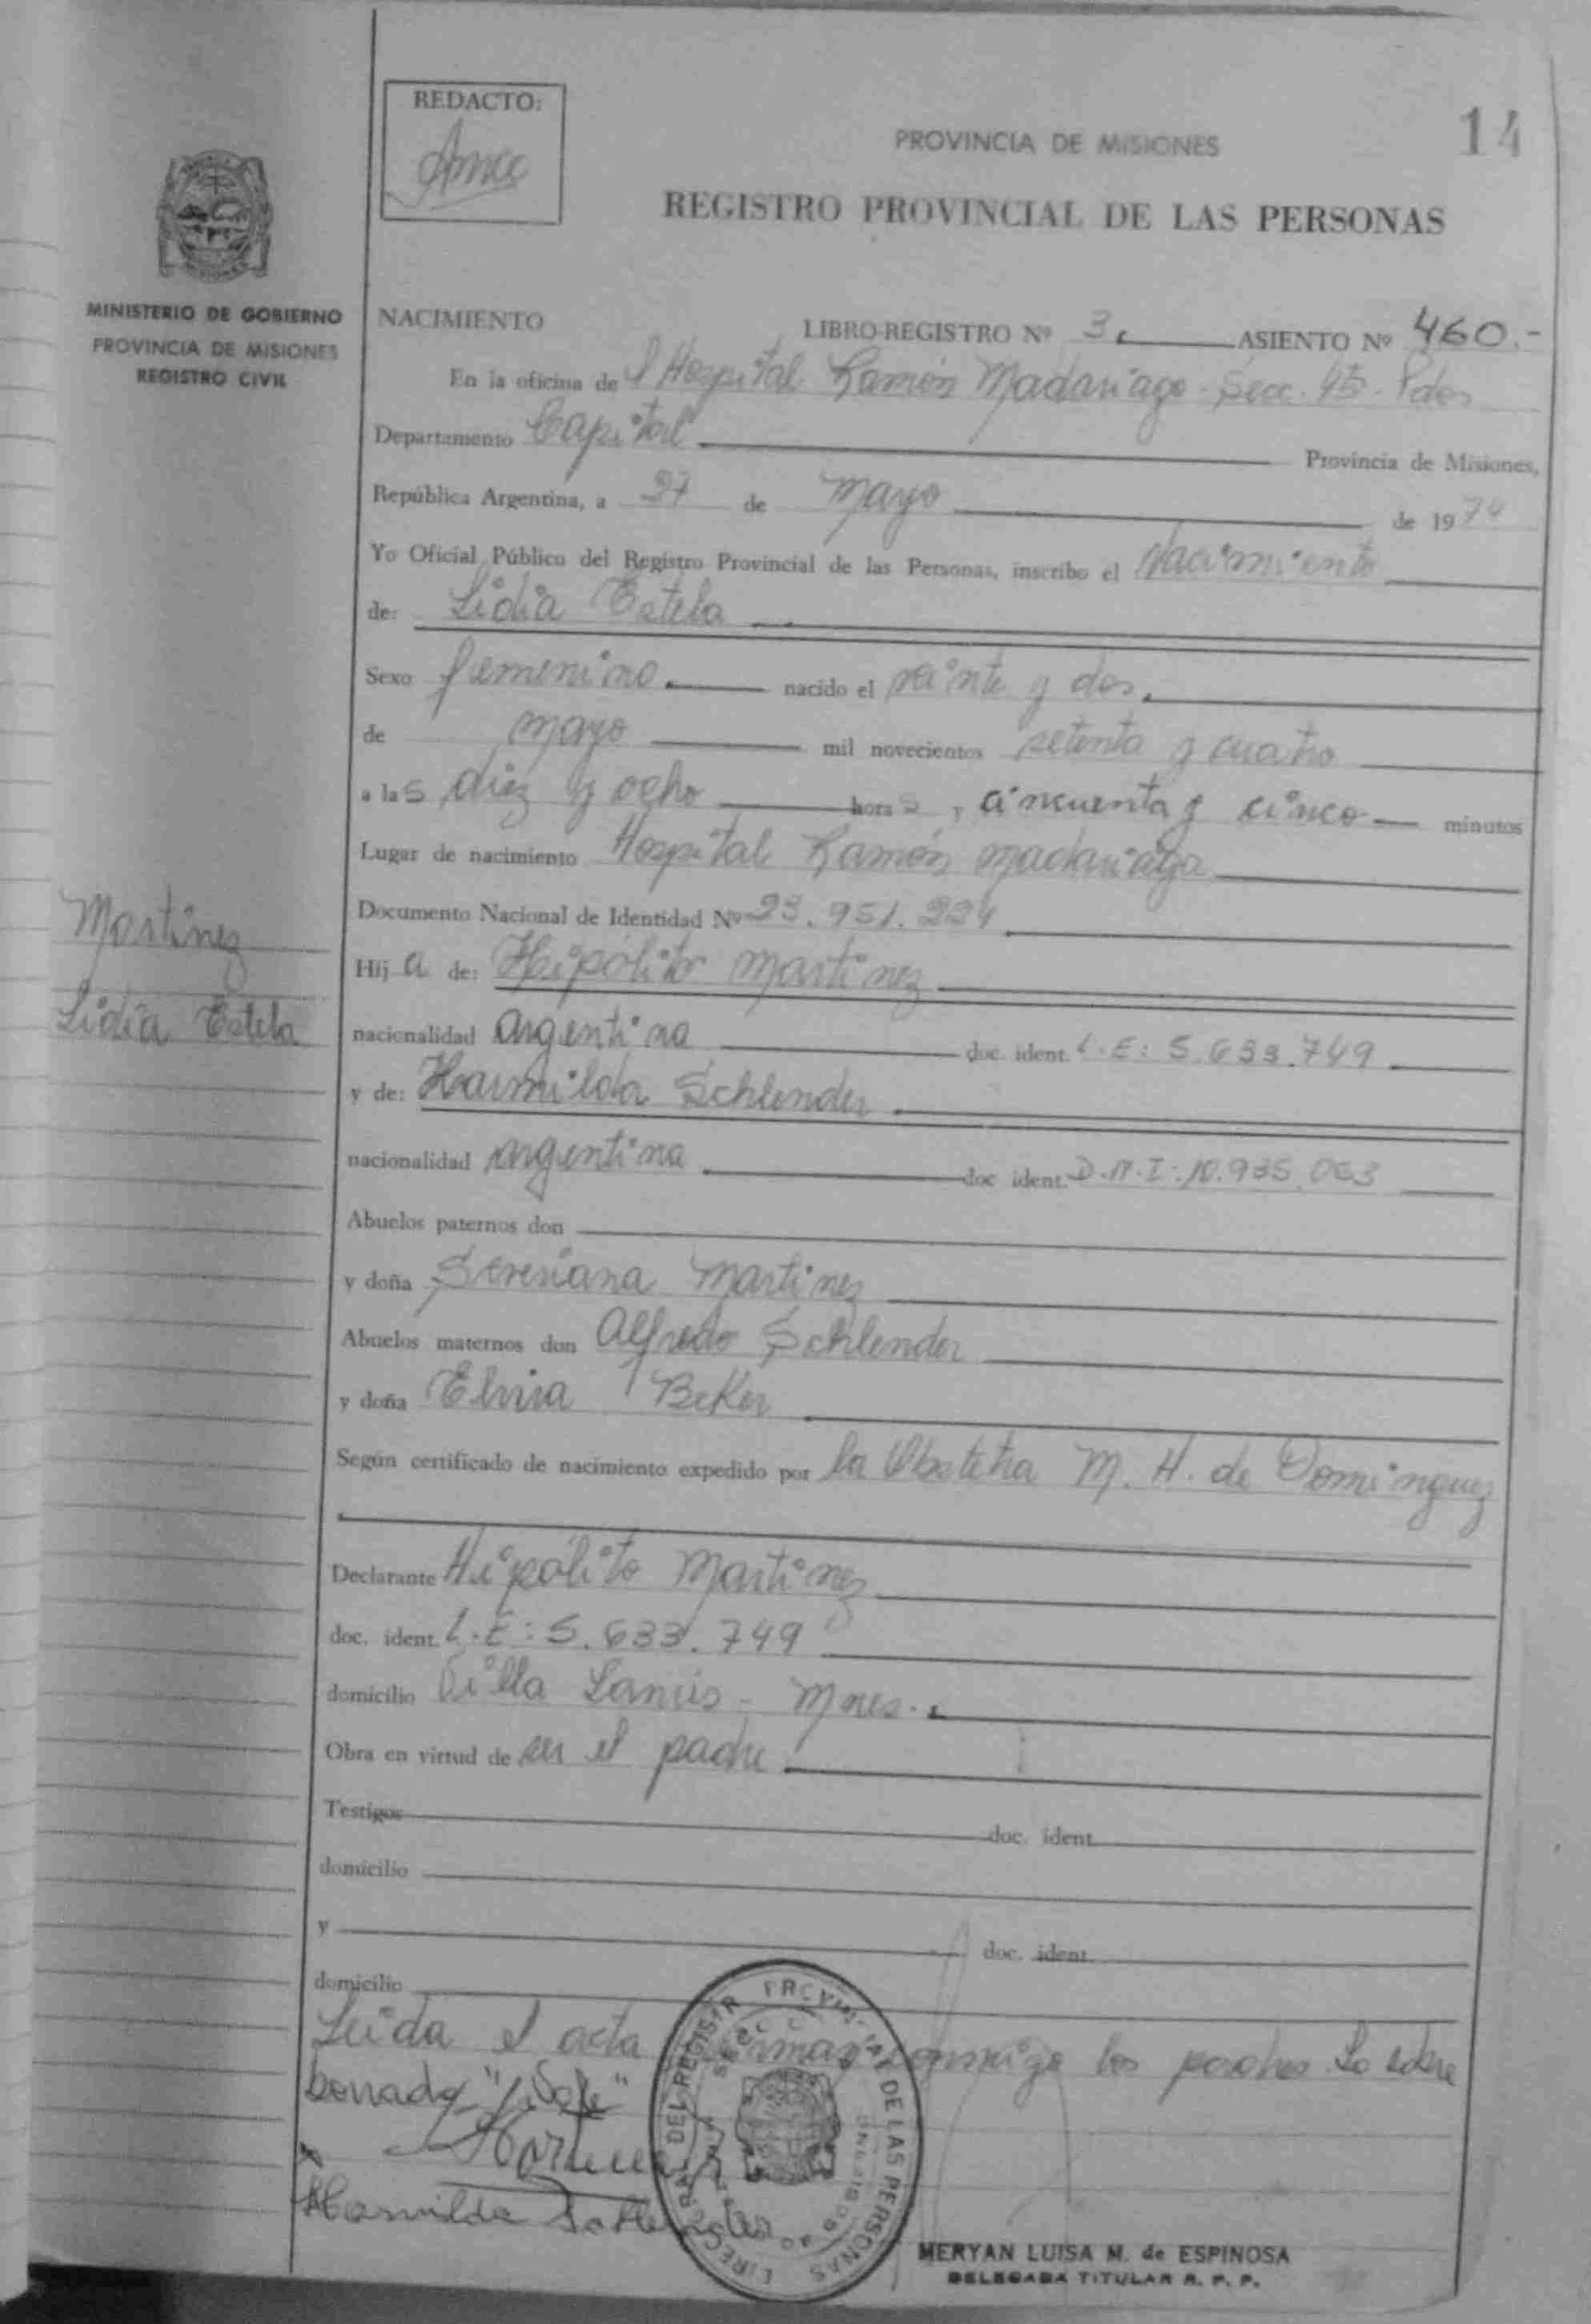 REDACTO:
14
PROVINCIA DE MISIONES
REGISTRO PROVINCIAL DE LAS PERSONAS
MINISTERIO DE GOBIERNO
PROVINCIA DE MISIONES
REGISTRO CIVIL
NACIMIENTO LIBRO-REGISTRO Nº 3. ASIENTO Nº 460.-
En la oficina de l Hospital Ramón Madariaga - Secc. 4ta. Pdas
Departamento Capital Provincia de Misiones,
República Argentina, a 27 de Mayo de 1974
Yo Oficial Público del Registro Provincial de las Personas, inscribo el Nacimiento
de: Lidia Estela
Sexo femenino. nacido el veinte y dos.
de mayo mil novecientos setenta y cuatro
a las diez y ocho horas y cincuenta y cinco minutos
Lugar de nacimiento Hospital Ramón Madariaga
Documento Nacional de Identidad Nº 23.951.224
Martinez
Lidia Estela
Hija de: Hipólito Martinez
nacionalidad argentina doc. ident. L.E: 5.633.749
y de: Harmilda Schlender
nacionalidad argentina doc ident. D.N.I: 10.935.063
Abuelos paternos don
y doña Martinez
Abuelos maternos don Alfredo Schlender
y doña Elvira Beker
Según certificado de nacimiento expedido por la Obstetra M. H. de Dominguez
Declarante Hipólito Martinez
doc. ident. L.E: 5.633.749
domicilio Villa Lanús - Mnes.
Obra en virtud de ser el padre
Testigos doc. ident.
domicilio
y doc. ident.
domicilio
Leida el acta firman conmigo los padres Lo sobre
borrado "Vale"
DIRECCION DEL REGISTRO PROVINCIAL DE LAS PERSONAS
MERYAN LUISA M. de ESPINOSA
DELEGADA TITULAR R. P. P.